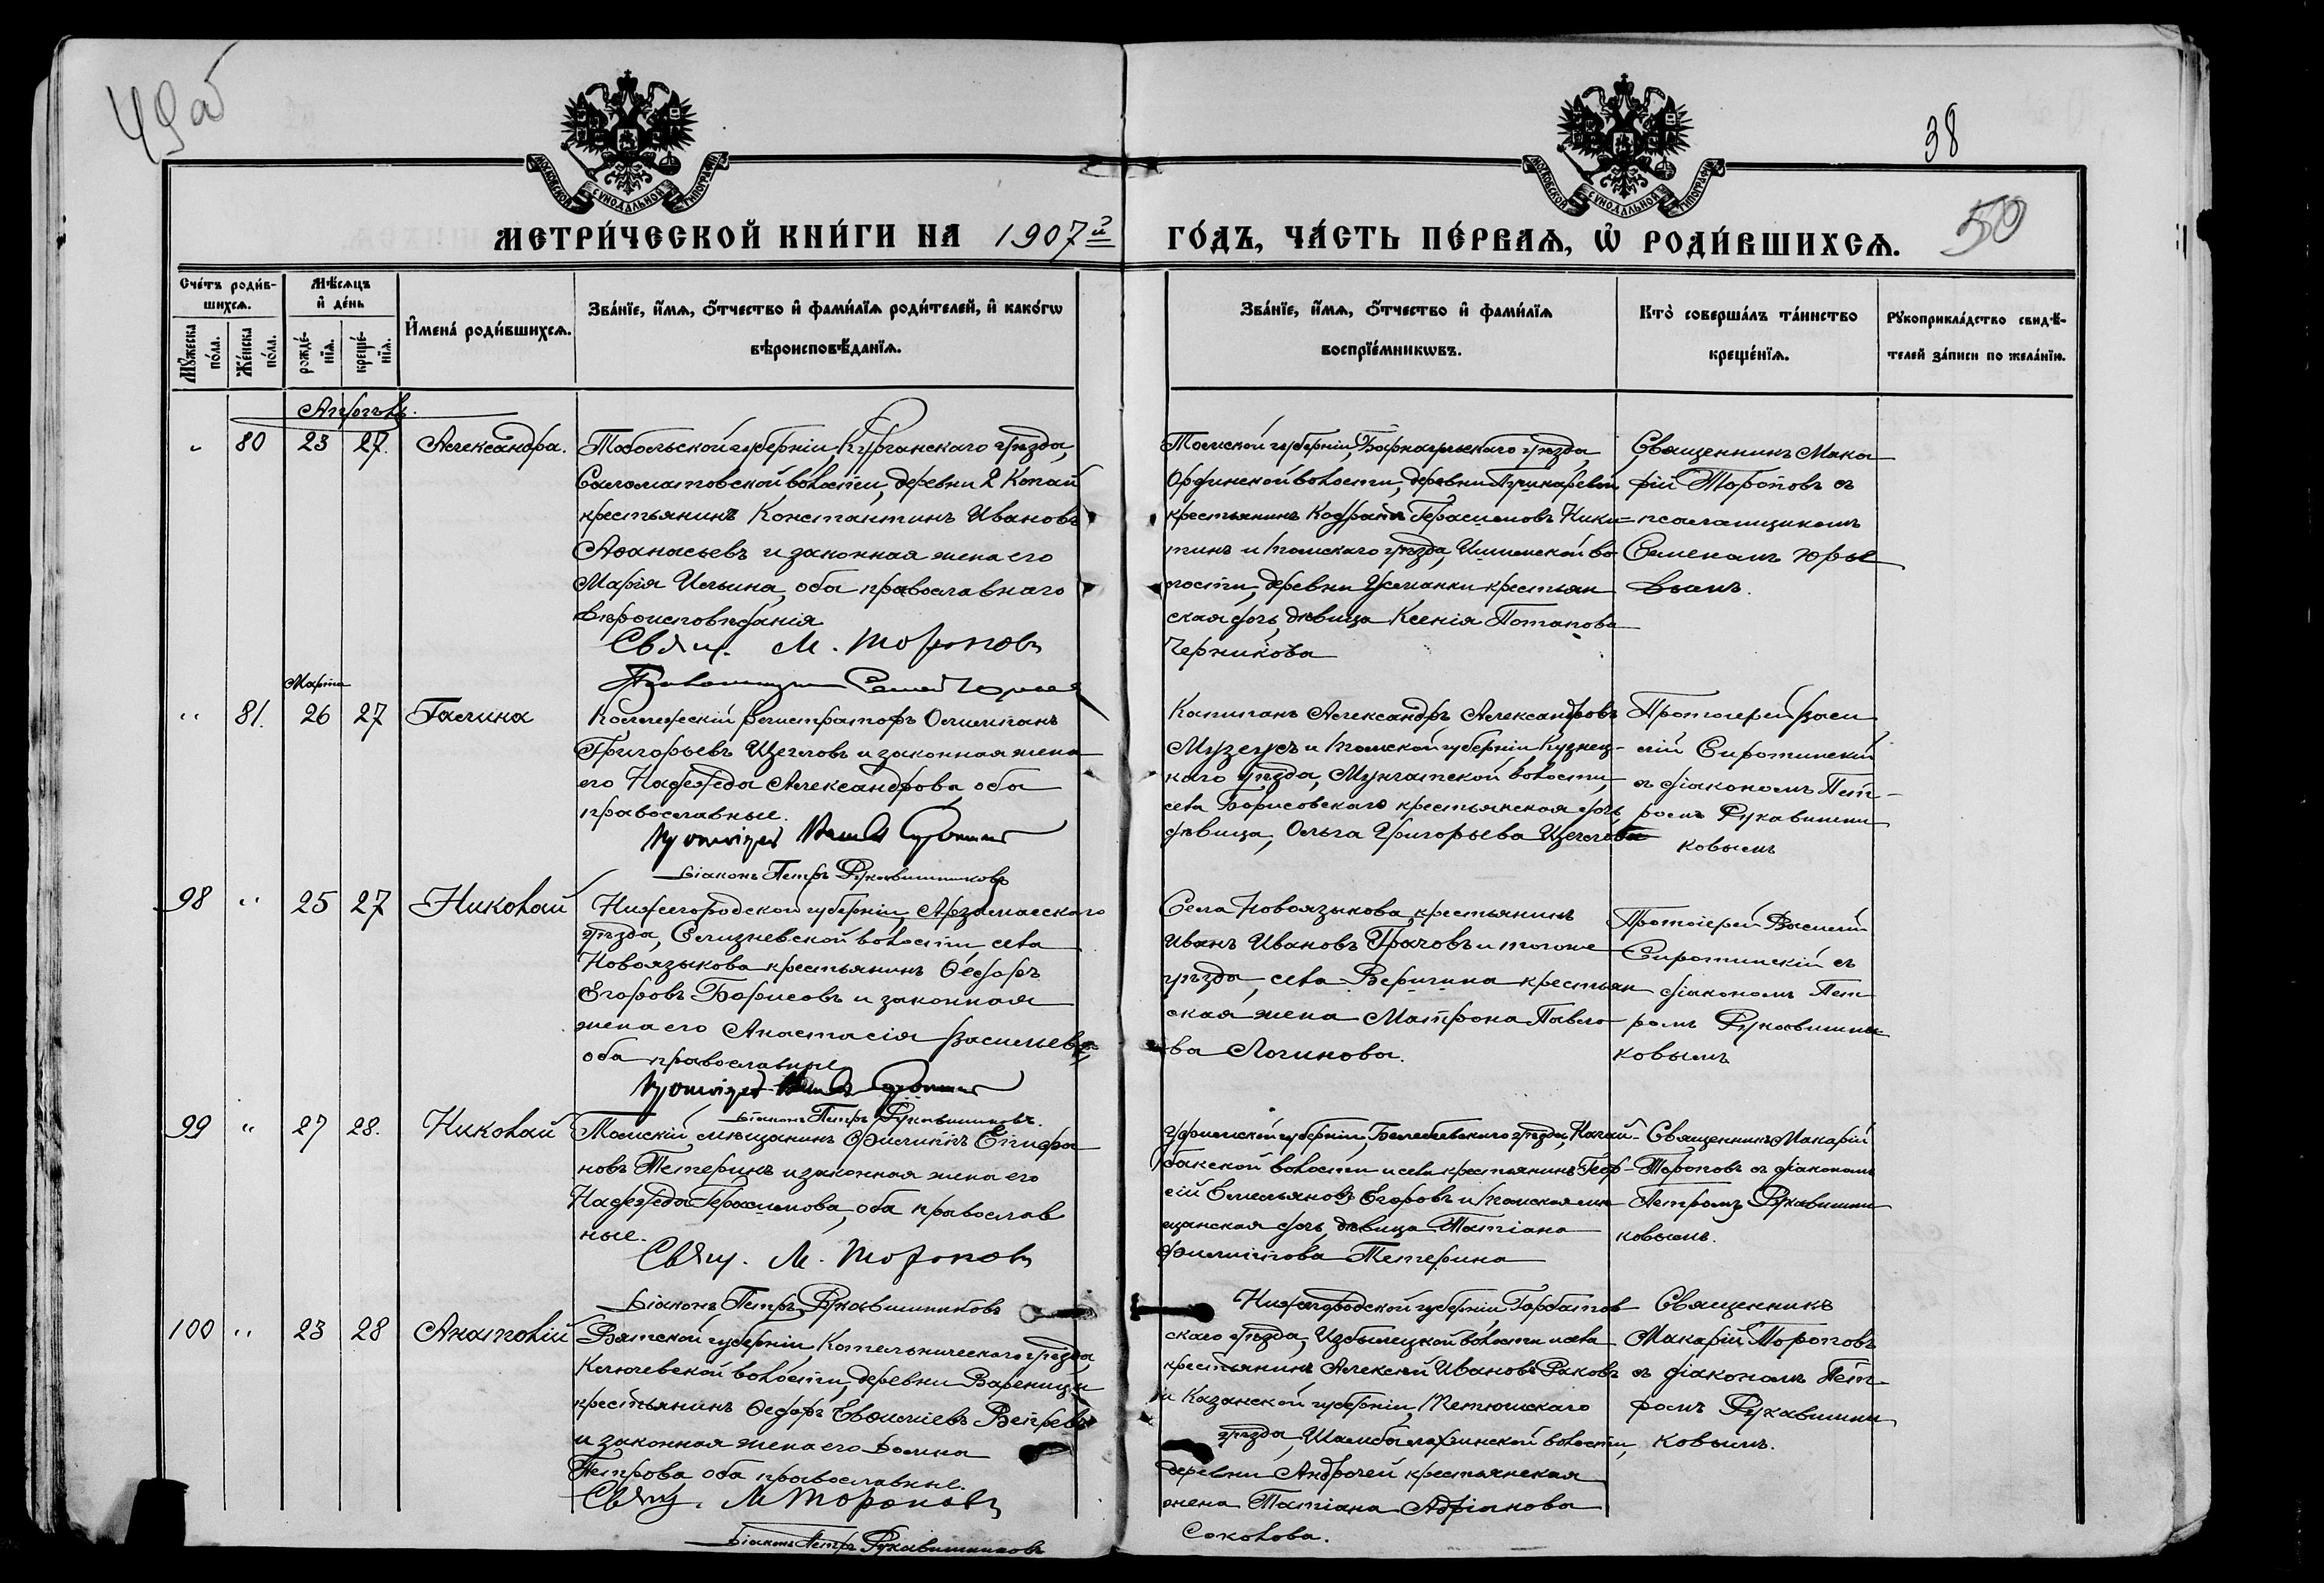 49об
38
50
МОСКОВСКОЙ СѴНОДАЛЬНОЙ ТИПОГРАФІИ
МОСКОВСКОЙ СѴНОДАЛЬНОЙ ТИПОГРАФІИ
МЕТРИ́ЧЕСКОЙ КНИ́ГИ НА 1907й
ГО́ДЪ, ЧА́СТЬ ПЕ́РВАѦ, Ѽ РОДИ́ВШИХСѦ.
Сче́тъ роди́в-
шихсѧ.
Мꙋ́жеска по́ла.
Же́нска по́ла.
Мѣ́сѧцъ
и҆ де́нь
рожде́-
нїѧ.
креще́-
нїѧ.
И҆мена́ роди́вшихсѧ.
Зва́нїе, и҆́мѧ, ѻ҆́тчество и҆ фами́лїѧ роди́телей, и҆ како́гѡ
вѣроисповѣ́данїѧ.
Зва́нїе, и҆́мѧ, ѻ҆́тчество и҆ фами́лїѧ
воспрїе́мникѡвъ.
Кто̀ соверша́лъ та́инство
креще́нїѧ.
Рꙋкоприкла́дство свидѣ́-
телей за́писи по жела́нїю.
Апрѣль.
" 80 23 27. Александра.
Тобольской губерніи, Курганскаго уѣзда,
Саломатовской волости, деревни 2 Копай
крестьянинъ Константинъ Ивановъ
Аѳанасьевъ и законная жена его
Марія Ильина, оба православнаго
вѣроисповѣданія
Свящ. М. Торопов
Томской губерніи, Барнаульскаго уѣзда,
Ординской волости, деревни
крестьянинъ Кодратъ Герасимовъ Ники-
тинъ и Томскаго уѣзда, Ишимской во-
лости, деревни Усманки крестьян
ская дочь, дѣвица Ксенія Потапова
Черникова
Священникъ Мака
рій Тороповъ съ
псаломщикомъ
Семеномъ Юрье
вымъ.
Марта
" 81. 26 27 Галина
Коллежскій регистраторъ
Григорьевъ Щегловъ и законная жена
его Надежда Александрова, оба
православные.
Протоіерей Василій Сиротинскій
Діаконъ Петръ Рукавишниковъ
Капитанъ Александръ Александровъ
и Томской губерніи, Кузнец-
каго уѣзда, Мунгатской волости,
села Борисовскаго крестьянская дочь,
дѣвица, Ольга Григорьева Щеглова
Протоіерей Васи
лій Сиротинскій
съ діакономъ Пет-
ромъ Рукавишни
ковымъ
98 " 25 27 Николай
Нижегородской губерніи, Арзамасскаго
уѣзда, Слизневской волости села
Новоязыкова крестьянинъ Ѳедоръ
Егоровъ Борисовъ и законная
жена его Анастасія Васильева,
оба православные
Протоіерей Василій Сиротинскій
Діаконъ Петръ Рукавишниковъ.
Села Новоязыкова крестьянинъ
Иванъ Ивановъ Грачовъ и того же
уѣзда, села Веригина крестьян
ская жена Матрона Павло
ва Логинова.
Протоіерей Василій
Сиротинскій съ
діакономъ Пет
ромъ Рукавишни
ковымъ
99 " 27 28. Николай
Томскій мѣщанинъ Филиппъ Епифа
новъ Тетеринъ и законная жена его
Надежда Герасимова, оба православ
ные.
Свящ. М. Торопов
Діаконъ Петръ Рукавишниковъ
Уфимской губерніи, Белебеевскаго уѣзда, Нагай-
бакской волости и села крестьянинъ Геор-
гій Емельяновъ Егоровъ и Томская мѣ
щанская дочь, дѣвица Татіана
Филиппова Тетерина
Священникъ Макарій
Тороповъ съ діакономъ
Петромъ Рукавишни
ковымъ.
100 " 23 28 Анатолій
Вятской губерніи, Котельническаго уѣзда,
Ключевской волости, деревни Вареницы
крестьянинъ Ѳедоръ
и законная жена его Домна
Петрова оба православные.
Свящ. М Торопов
Діаконъ Петръ Рукавишниковъ
Нижегородской губерніи Горбатов
скаго уѣзда, Избылецкой волости и села
крестьянинъ Алексѣй Ивановъ Раковъ
и Казанской губерніи, Тетюшскаго
уѣзда, волости,
деревни крестьянская
жена Татіана Адріанова
Соколова.
Священникъ
Макарій Тороповъ
съ діакономъ Пет-
ромъ Рукавишни
ковымъ.